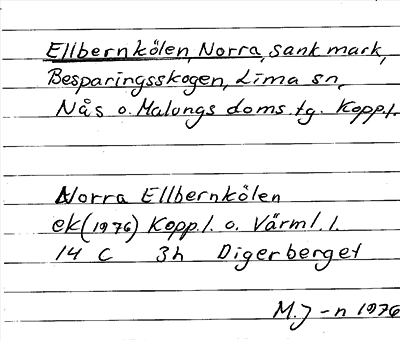 Ellbernkölen, Norra, sank mark,
Besparingsskogen, Lima sn,
Nås o. Malungs doms.tg. Kopp.l.
Norra Ellbernkölen
ek(1976) Kopp.l. o. Värml.l.
14 C 3h Digerberget
M.J-n 1976